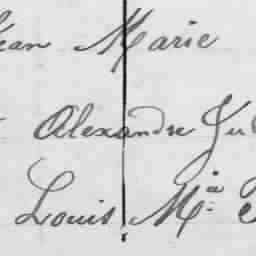 Jean Marie
Alexandre Ju
Louis Mia